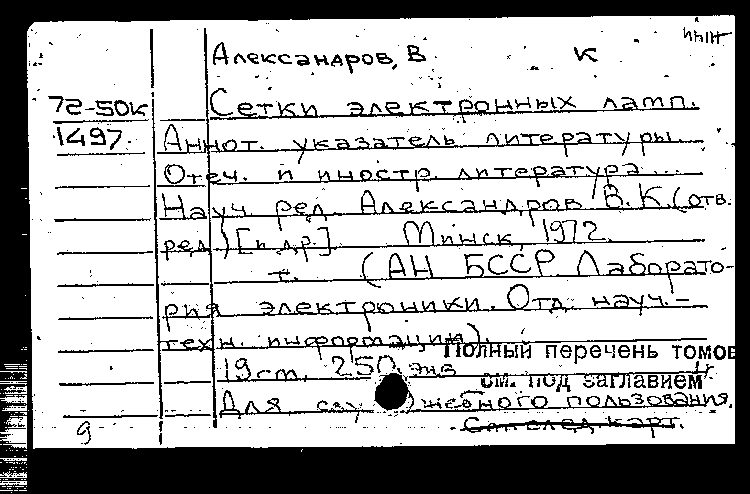 Александров, В К
72-50к Сетки электронных ламп.
1497. Аннот. указатель литературы.
Отеч. и иностр. литература...
Науч. ред. Александров В.К. (отв.
ред.) [и др.] Минск, 1972.
т. (АН БССР Лаборато-
рия электроники. Отд. науч.-
техн. информации).
Полный перечень томов
19 ст. 250 экз
см. под заглавием
Для служебного пользования.
См след карт.
9